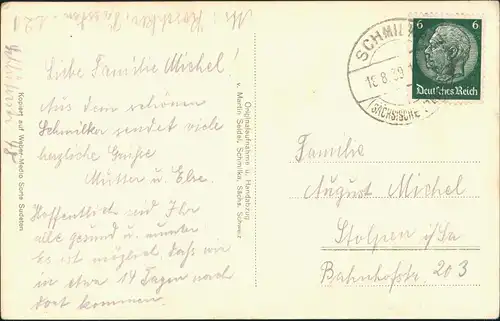 Liebe Familie Michel!
Aus dem schönen
Schmilka sendet viele
herzliche Grüße
Mutter u. Else
Hoffentlich seid Ihr
alle gesund u. munter
Es ist möglich daß wir
in etwa 14 Tagen nach
dort kommen.
Originalaufnahme u. Handabzug
v. Martin Seidel, Schmilka, Sächs. Schweiz
Kopiert auf Weber-Medio Sorte Sudeten
SCHMILKA
18.8.39
SÄCHSISCHE
6 6
Deutsches Reich
Familie
August Michel
Stolpen i/Sa
Bahnhofstr. 203